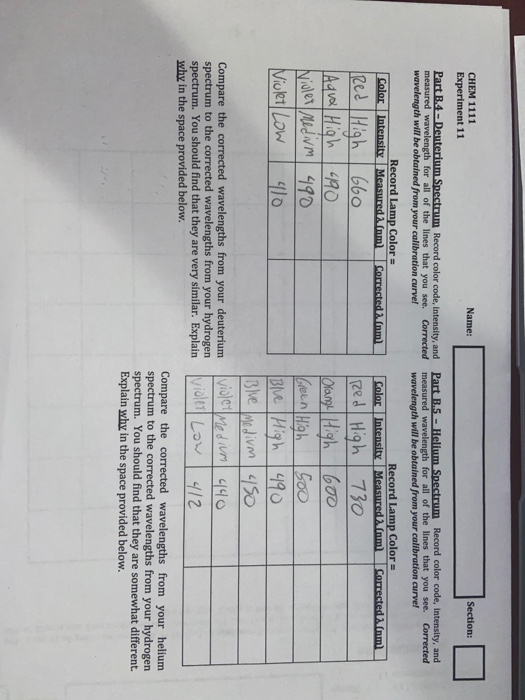 CHEM 1111
Experiment 11
Name:
Section:
Part B.4 – Deuterium Spectrum Record color code, intensity, and
measured wavelength for all of the lines that you see. Corrected
wavelength will be obtained from your calibration curve!
Record Lamp Color =
Color Intensity Measured λ (nm) Corrected λ (nm)
Red High 660
Aqua High 490
Violet Medivm 490
Violet Low 410
Compare the corrected wavelengths from your deuterium
spectrum to the corrected wavelengths from your hydrogen
spectrum. You should find that they are very similar. Explain
why in the space provided below.
Part B.5 – Helium Spectrum Record color code, intensity, and
measured wavelength for all of the lines that you see. Corrected
wavelength will be obtained from your calibration curve!
Record Lamp Color =
Color Intensity Measured λ (nm) Corrected λ (nm)
Red High 730
Orange High 600
Green High 500
Blue High 490
Blue Medivm 450
Violet Medivm 440
Violet Low 412
Compare the corrected wavelengths from your helium
spectrum to the corrected wavelengths from your hydrogen
spectrum. You should find that they are somewhat different.
Explain why in the space provided below.